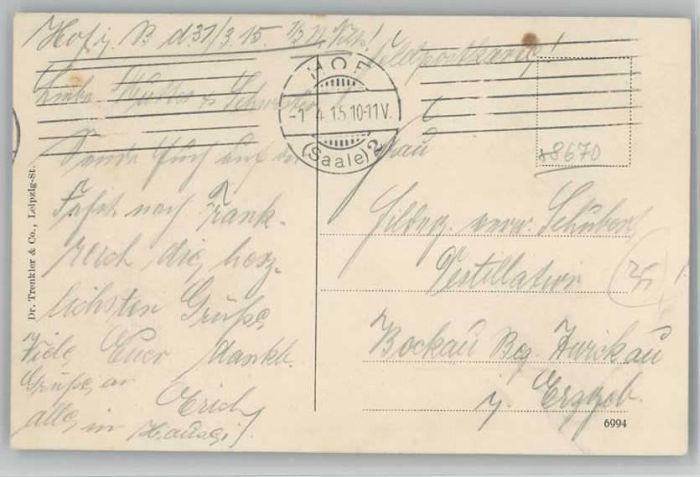 Hof i. B d. 31/3. 15.
Feldpostkarte!
HOF
-1. 4. 15. 10-11 V.
(Saale) 2
Liebe Mutter u. Schwester
Sende Euch auf der
Fahrt nach Frank-
reich die herz-
lichsten Grüße,
Viele Euer dankb.
Grüße an Erich
alle im Hause
Frau
verw. Schubert
Destillation
Bockau Bez. Zwickau
i. Erzgeb.
8670
Dr. Trenkler & Co., Leipzig-St.
6994